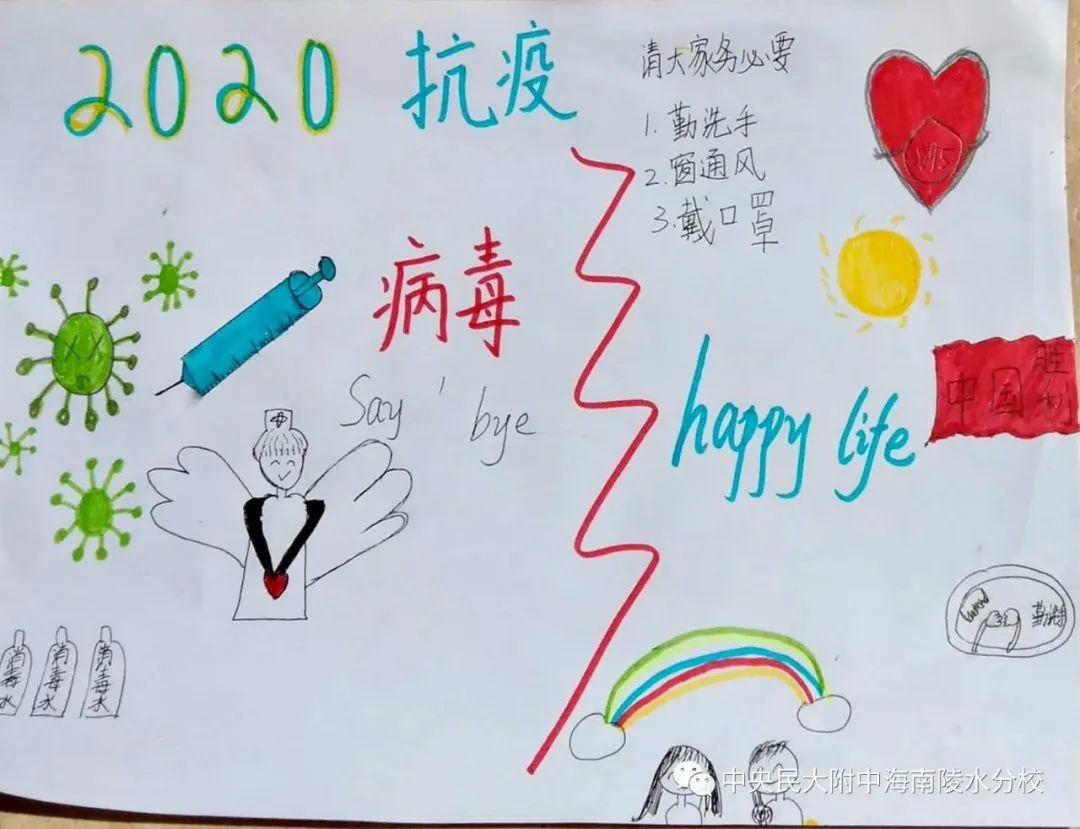 2020 抗疫
请大家务必要
1. 勤洗手
2. 窗通风
3. 戴口罩
N95
病毒
Say' bye
happy life
中国胜利
勤洗手
消毒水
消毒水
消毒水
中央民大附中海南陵水分校